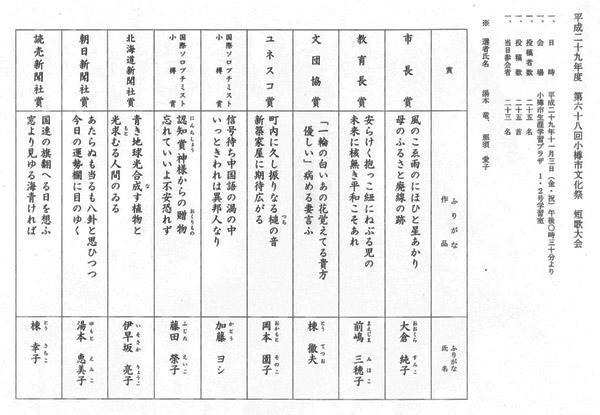 平成二十九年度　第六十八回小樽市文化祭　短歌大会
一、日　時　平成二十九年十一月三日（金・祝）午後〇時三十分より
一、会　場　小樽市生涯学習プラザ　１・２号学習室
一、投稿者数　二十五　名
一、投稿数　二十五　首
一、当日参会者　二十三　名
※　選者氏名　湯本　竜、那須　愛子
賞
ふりがな
作品
ふりがな
氏名
市長賞
風のこゑ雨のにほひと星あかり
母のふるさと廃線の跡
おおくら　すみこ
大倉　純子
教育長賞
安らけく抱っこ紐にねぶる児の
未来に核無き平和こそあれ
まえじま　みほこ
前嶋　三穂子
文団協賞
「一輪の白いあの花覚えてる貴方
優しい」病める妻言ふ
とう　てつお
棟　徹夫
ユネスコ賞
町内に久し振りなる槌の音
つち
新築家屋に期待広がる
おかもと　そのこ
岡本　園子
国際ソロプチミスト
小樽賞
信号待ち中国語の渦の中
いっときわれは異邦人なり
かとう
加藤　ヨシ
国際ソロプチミスト
小樽賞
にんちしょう
認知賞神様からの贈物
おくりもの
忘れていいよ不安恐れず
ふじた　えいこ
藤田　榮子
北海道新聞社賞
青き地球光合成す植物と
な
光求むる人間のゐる
もと
いそさか　りょうこ
伊早坂　亮子
朝日新聞社賞
あたらぬも当るも八卦と思ひつつ
今日の運勢欄に目のゆく
ゆもと　えみこ
湯本　恵美子
読売新聞社賞
国連の旗翻へる日を想ふ
窓より見ゆる海青ければ
とう　さちこ
棟　幸子